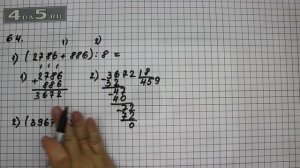 4DS.RU
64.
1) 2)
1) (2786 + 886) : 8 =
1) 2786 2) 3672 | 8
+ 886 32 459
3672 47
40
72
72
0
2) (3967